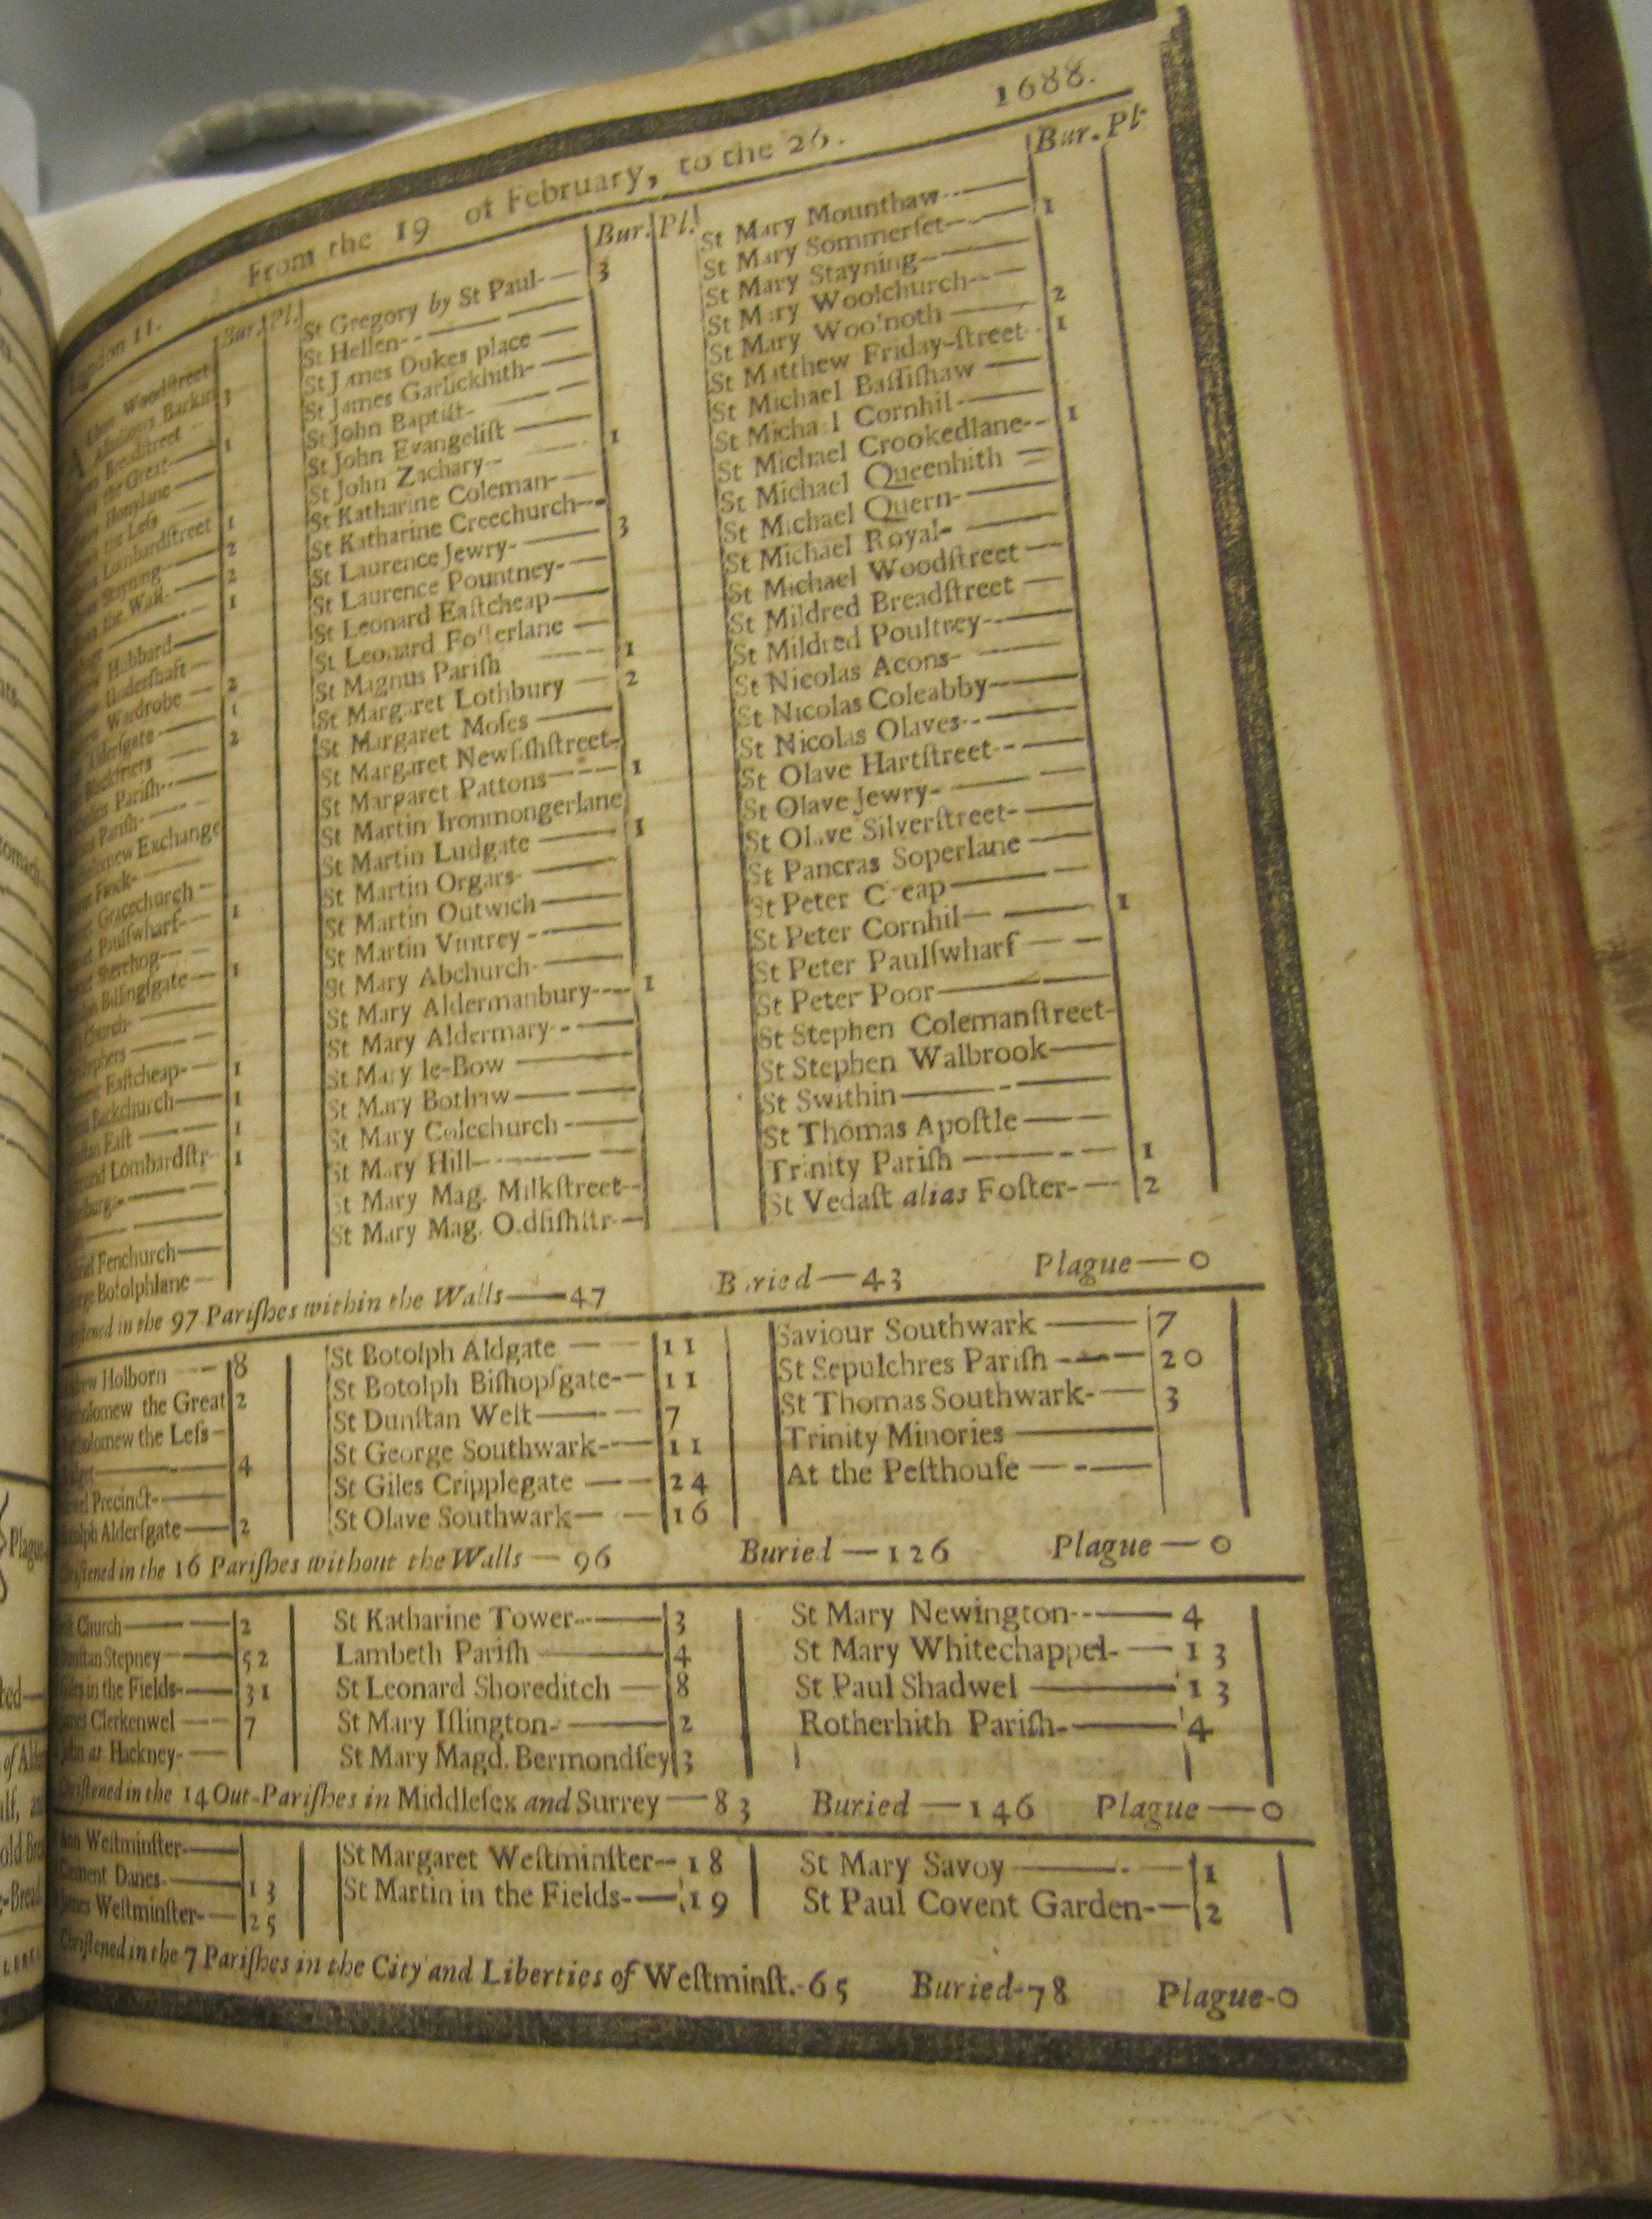 From the 19 of February, to the 26. 1688.
Bur. Pl.
Woodstreet
Barkin 3
Breadſtreet
the Great 1
Honylane
the Leſs
Lombardſtreet 1
Stayning 2
the Wall 2
1
Hubbard
Underſhaft
Wardrobe 2
Alderſgate 1
Blackfriers 2
Pariſh
Pariſh
Exchange
Finck
Gracechurch
Paulſwharf 1
Sherehog
Billingſgate 1
Church
Eaſtcheap 1
Backchurch 1
Eaſt 1
Lombardſtr 1
Fenchurch
Botolphlane
Bur. Pl.
St Gregory by St Paul 3
St Hellen
St James Dukes place
St James Garlickhith
St John Baptiſt
St John Evangeliſt
St John Zachary 1
St Katharine Coleman
St Katharine Creechurch
St Laurence Jewry 3
St Laurence Pountney
St Leonard Eaſtcheap
St Leonard Foſterlane
St Magnus Pariſh 1
St Margaret Lothbury 2
St Margaret Moſes
St Margaret Newfiſhſtreet
St Margaret Pattons 1
St Martin Ironmongerlane
St Martin Ludgate 1
St Martin Orgars
St Martin Outwich
St Martin Vintrey
St Mary Abchurch
St Mary Aldermanbury 1
St Mary Aldermary
St Mary le-Bow
St Mary Bothaw
St Mary Colechurch
St Mary Hill
St Mary Mag. Milkſtreet
St Mary Mag. Oldfiſhſtr
Bur. Pl.
St Mary Mounthaw
St Mary Sommerſet 1
St Mary Stayning
St Mary Woolchurch
St Mary Woolnoth 2
St Matthew Friday-ſtreet 1
St Michael Baſſiſhaw
St Michael Cornhil
St Michael Crookedlane 1
St Michael Queenhith
St Michael Quern
St Michael Royal
St Michael Woodſtreet
St Mildred Breadſtreet
St Mildred Poultrey
St Nicolas Acons
St Nicolas Coleabby
St Nicolas Olaves
St Olave Hartſtreet
St Olave Jewry
St Olave Silverſtreet
St Pancras Soperlane
St Peter Cheap
St Peter Cornhil 1
St Peter Paulſwharf
St Peter Poor
St Stephen Colemanſtreet
St Stephen Walbrook
St Swithin
St Thomas Apoſtle
Trinity Pariſh 1
St Vedaſt alias Foſter 2
in the 97 Pariſhes within the Walls—47 Buried—43 Plague—0
Holborn 8
the Great 2
the Leſs
4
Precinct
Alderſgate 2
St Botolph Aldgate 11
St Botolph Biſhopſgate 11
St Dunſtan Weſt 7
St George Southwark 11
St Giles Cripplegate 24
St Olave Southwark 16
Saviour Southwark 7
St Sepulchres Pariſh 20
St Thomas Southwark 3
Trinity Minories
At the Peſthouſe
in the 16 Pariſhes without the Walls—96 Buried—126 Plague—0
Church 2
Stepney 52
in the Fields 31
Clerkenwel 7
at Hackney
St Katharine Tower 3
Lambeth Pariſh 4
St Leonard Shoreditch 8
St Mary Iſlington 2
St Mary Magd. Bermondſey 3
St Mary Newington 4
St Mary Whitechappel 13
St Paul Shadwel 13
Rotherhith Pariſh 4
in the 14 Out-Pariſhes in Middleſex and Surrey—83 Buried—146 Plague—0
Weſtminſter
Danes 13
Weſtminſter 25
St Margaret Weſtminſter 18
St Martin in the Fields 19
St Mary Savoy 1
St Paul Covent Garden 2
Chriſtened in the 7 Pariſhes in the City and Liberties of Weſtminſt.-65 Buried-78 Plague-0